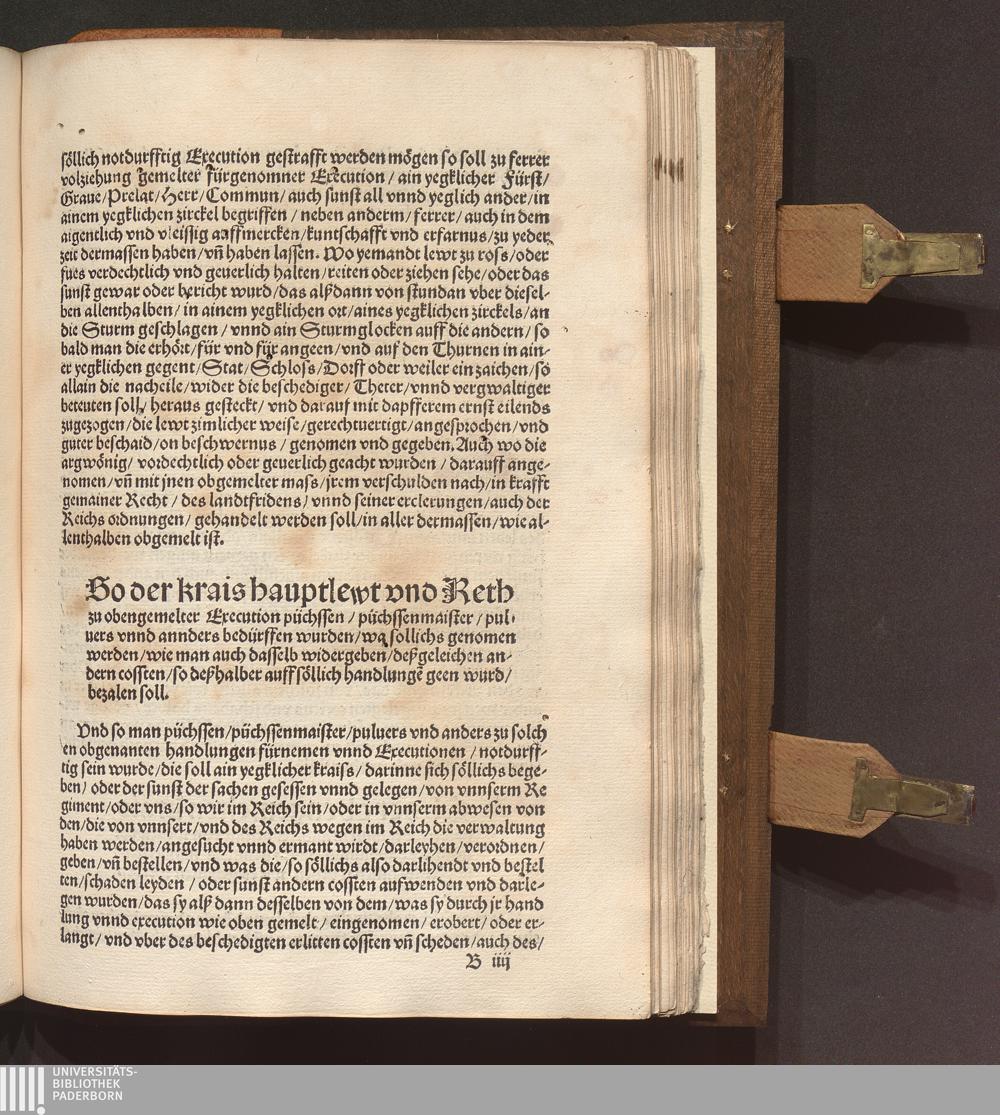 söllich notdurfftig Execution gestrafft werden mögen so soll zu ferrer
volziehung gemelter fürgenomner Execution / ain yegklicher Fürst/
Graue/Prelat/Herr/Commun/auch sunst all vnnd yeglich ander/in
ainem yegklichen zirckel begriffen / neben anderm/ferrer/auch in dem
aigentlich vnd vleissig auffmercken/kuntschafft vnd erfarnus/zu yeder
zeit dermassen haben/vñ haben lassen. Wo yemandt lewt zu ross/oder
fues verdechtlich vnd geuerlich halten/reiten oder ziehen sehe/oder das
sunst gewar oder bericht wurd/das alßdann von stundan vber diesel-
ben allenthalben/ in ainem yegklichen ort/aines yegklichen zirckels/an
die Sturm geschlagen / vnnd ain Sturmglocken auff die andern/so
bald man die erhört/für vnd für angeen/vnd auf den Thurnen in ain-
er yegklichen gegent/Stat/Schloss/Dorff oder weiler ein zaichen/so
allain die nacheile/wider die beschediger/Theter/vnnd vergwaltiger
beteuten soll/ heraus gesteckt/ vnd darauf mit dapfferem ernst eilends
zugezogen/die lewt zimlicher weise/gerechtuertigt/angesprochen/vnd
guter beschaid/on beschwernus / genomen vnd gegeben. Auch wo die
argwönig/ vordechtlich oder geuerlich geacht wurden / darauff ange-
nomen/vñ mit jnen obgemelter mass/jrem verschulden nach/in krafft
gemainer Recht / des landtfridens/ vnnd seiner erclerungen/auch der
Reichs ordnungen/ gehandelt werden soll/in aller dermassen/wie al-
lenthalben obgemelt ist.
So der krais hauptlewt vnd Reth
zu obengemelter Execution püchssen / püchssenmaister/pul-
uers vnnd annders bedürffen wurden/wa sollichs genomen
werden/wie man auch dasselb widergeben/deßgeleichen an-
dern cossten/so deßhalber auff söllich handlungē geen wurd/
bezalen soll.
Vnd so man püchssen/püchssenmaister/puluers vnd anders zu solch
en obgenanten handlungen fürnemen vnnd Executionen / notdurff-
tig sein wurde/die soll ain yegklicher kraiss/darinne sich söllichs bege-
ben/ oder der sunst der sachen gesessen vnnd gelegen/von vnnserm Re
giment/oder vns/so wir im Reich sein/oder in vnnserm abwesen von
den/die von vnnsert/vnd des Reichs wegen im Reich die verwaltung
haben werden/angesucht vnnd ermant wirdt/darleyhen/verordnen/
geben/vñ bestellen/vnd was die/so söllichs also darlihendt vnd bestel
ten/schaden leyden / oder sunst andern cossten aufwenden vnd darle-
gen wurden/das sy alß dann desselben von dem/was sy durch jr hand
lung vnnd execution wie oben gemelt/ eingenomen/ erobert/ oder er-
langt/ vnd vber des beschedigten erlitten cossten vñ scheden/auch des/
B iiij
UNIVERSITÄTS-
BIBLIOTHEK
PADERBORN